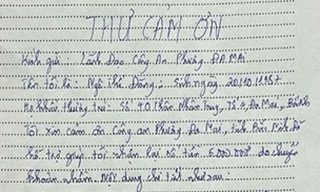 THƯ CẢM ƠN
Kính gửi: Lãnh Đạo Công An Phường ĐA MAI
Tên tôi là: Ngô Thế Đăng: Sinh ngày 20.10.1985
Hộ khẩu thường trú: Số Trần Nhân Trung, Tổ 4, Đa Mai,
Tôi xin cảm ơn Công an Phường Đa Mai, tỉnh Bắc Ninh đã
hỗ trợ giúp tôi nhận lại số tiền 5.000.000đ do chuyển
khoản nhầm. Nội dung chi tiết như sau: